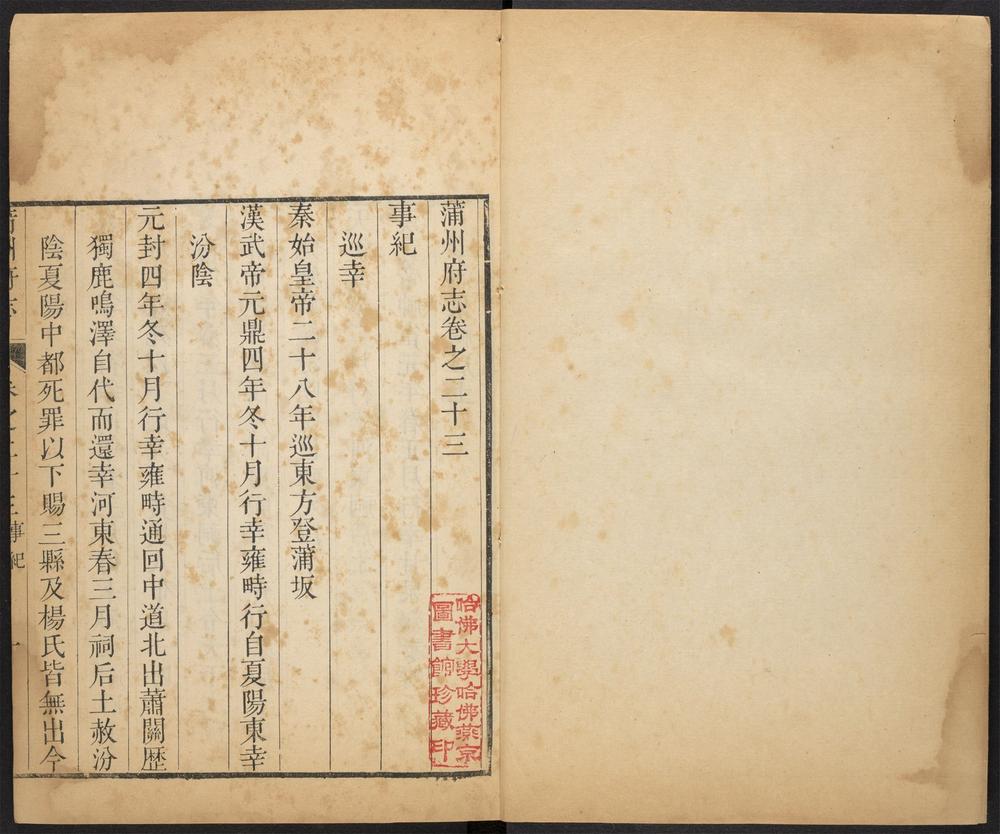 蒲州府志卷之二十三
事紀
巡幸
秦始皇帝二十八年巡東方登蒲坂
漢武帝元鼎四年冬十月行幸雍畤行自夏陽東幸
汾陰
元封四年冬十月行幸雍畤通回中道北出蕭關歷
獨鹿鳴澤自代而還幸河東春三月祠后土赦汾
陰夏陽中都死罪以下賜三縣及楊氏皆無出今
事紀
一
哈佛大學哈佛燕京
圖書館珍藏印